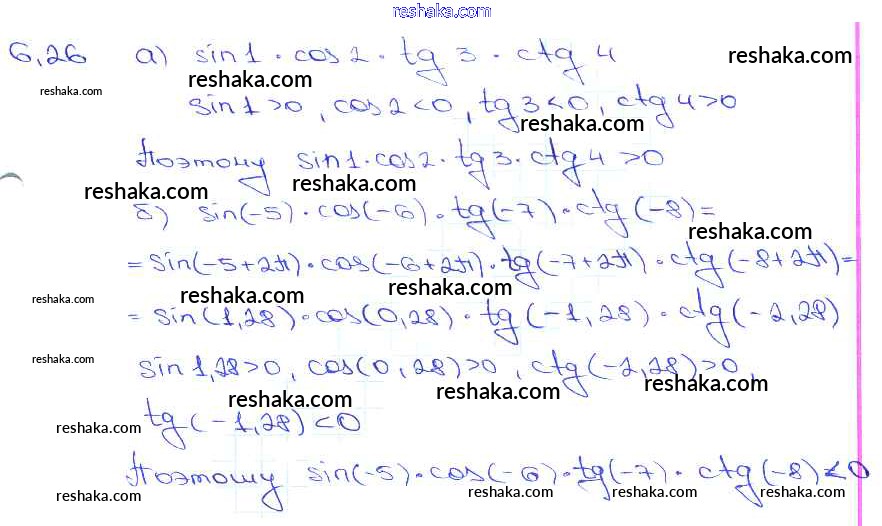 reshaka.com
6.26 а) sin1 · cos2 · tg 3 · ctg 4
reshaka.com
reshaka.com
reshaka.com
sin1 >0, cos2 <0, tg 3 <0, ctg 4 >0
reshaka.com
Поэтому sin1 · cos2 · tg 3 · ctg 4 >0
reshaka.com
reshaka.com
б) sin(-5) · cos(-6) · tg(-7) · ctg(-8) =
reshaka.com
= sin(-5+2π) · cos(-6+2π) · tg(-7+2π) · ctg(-8+2π) =
reshaka.com
reshaka.com
reshaka.com
= sin(1,28) · cos(0,28) · tg(-1,28) · ctg(-2,28)
reshaka.com
sin 1,28 >0, cos(0,28) >0, ctg(-2,28) >0,
reshaka.com
reshaka.com
reshaka.com
tg(-1,28) <0
reshaka.com
Поэтому sin(-5) · cos(-6) · tg(-7) · ctg(-8) < 0
reshaka.com
reshaka.com
reshaka.com
reshaka.com